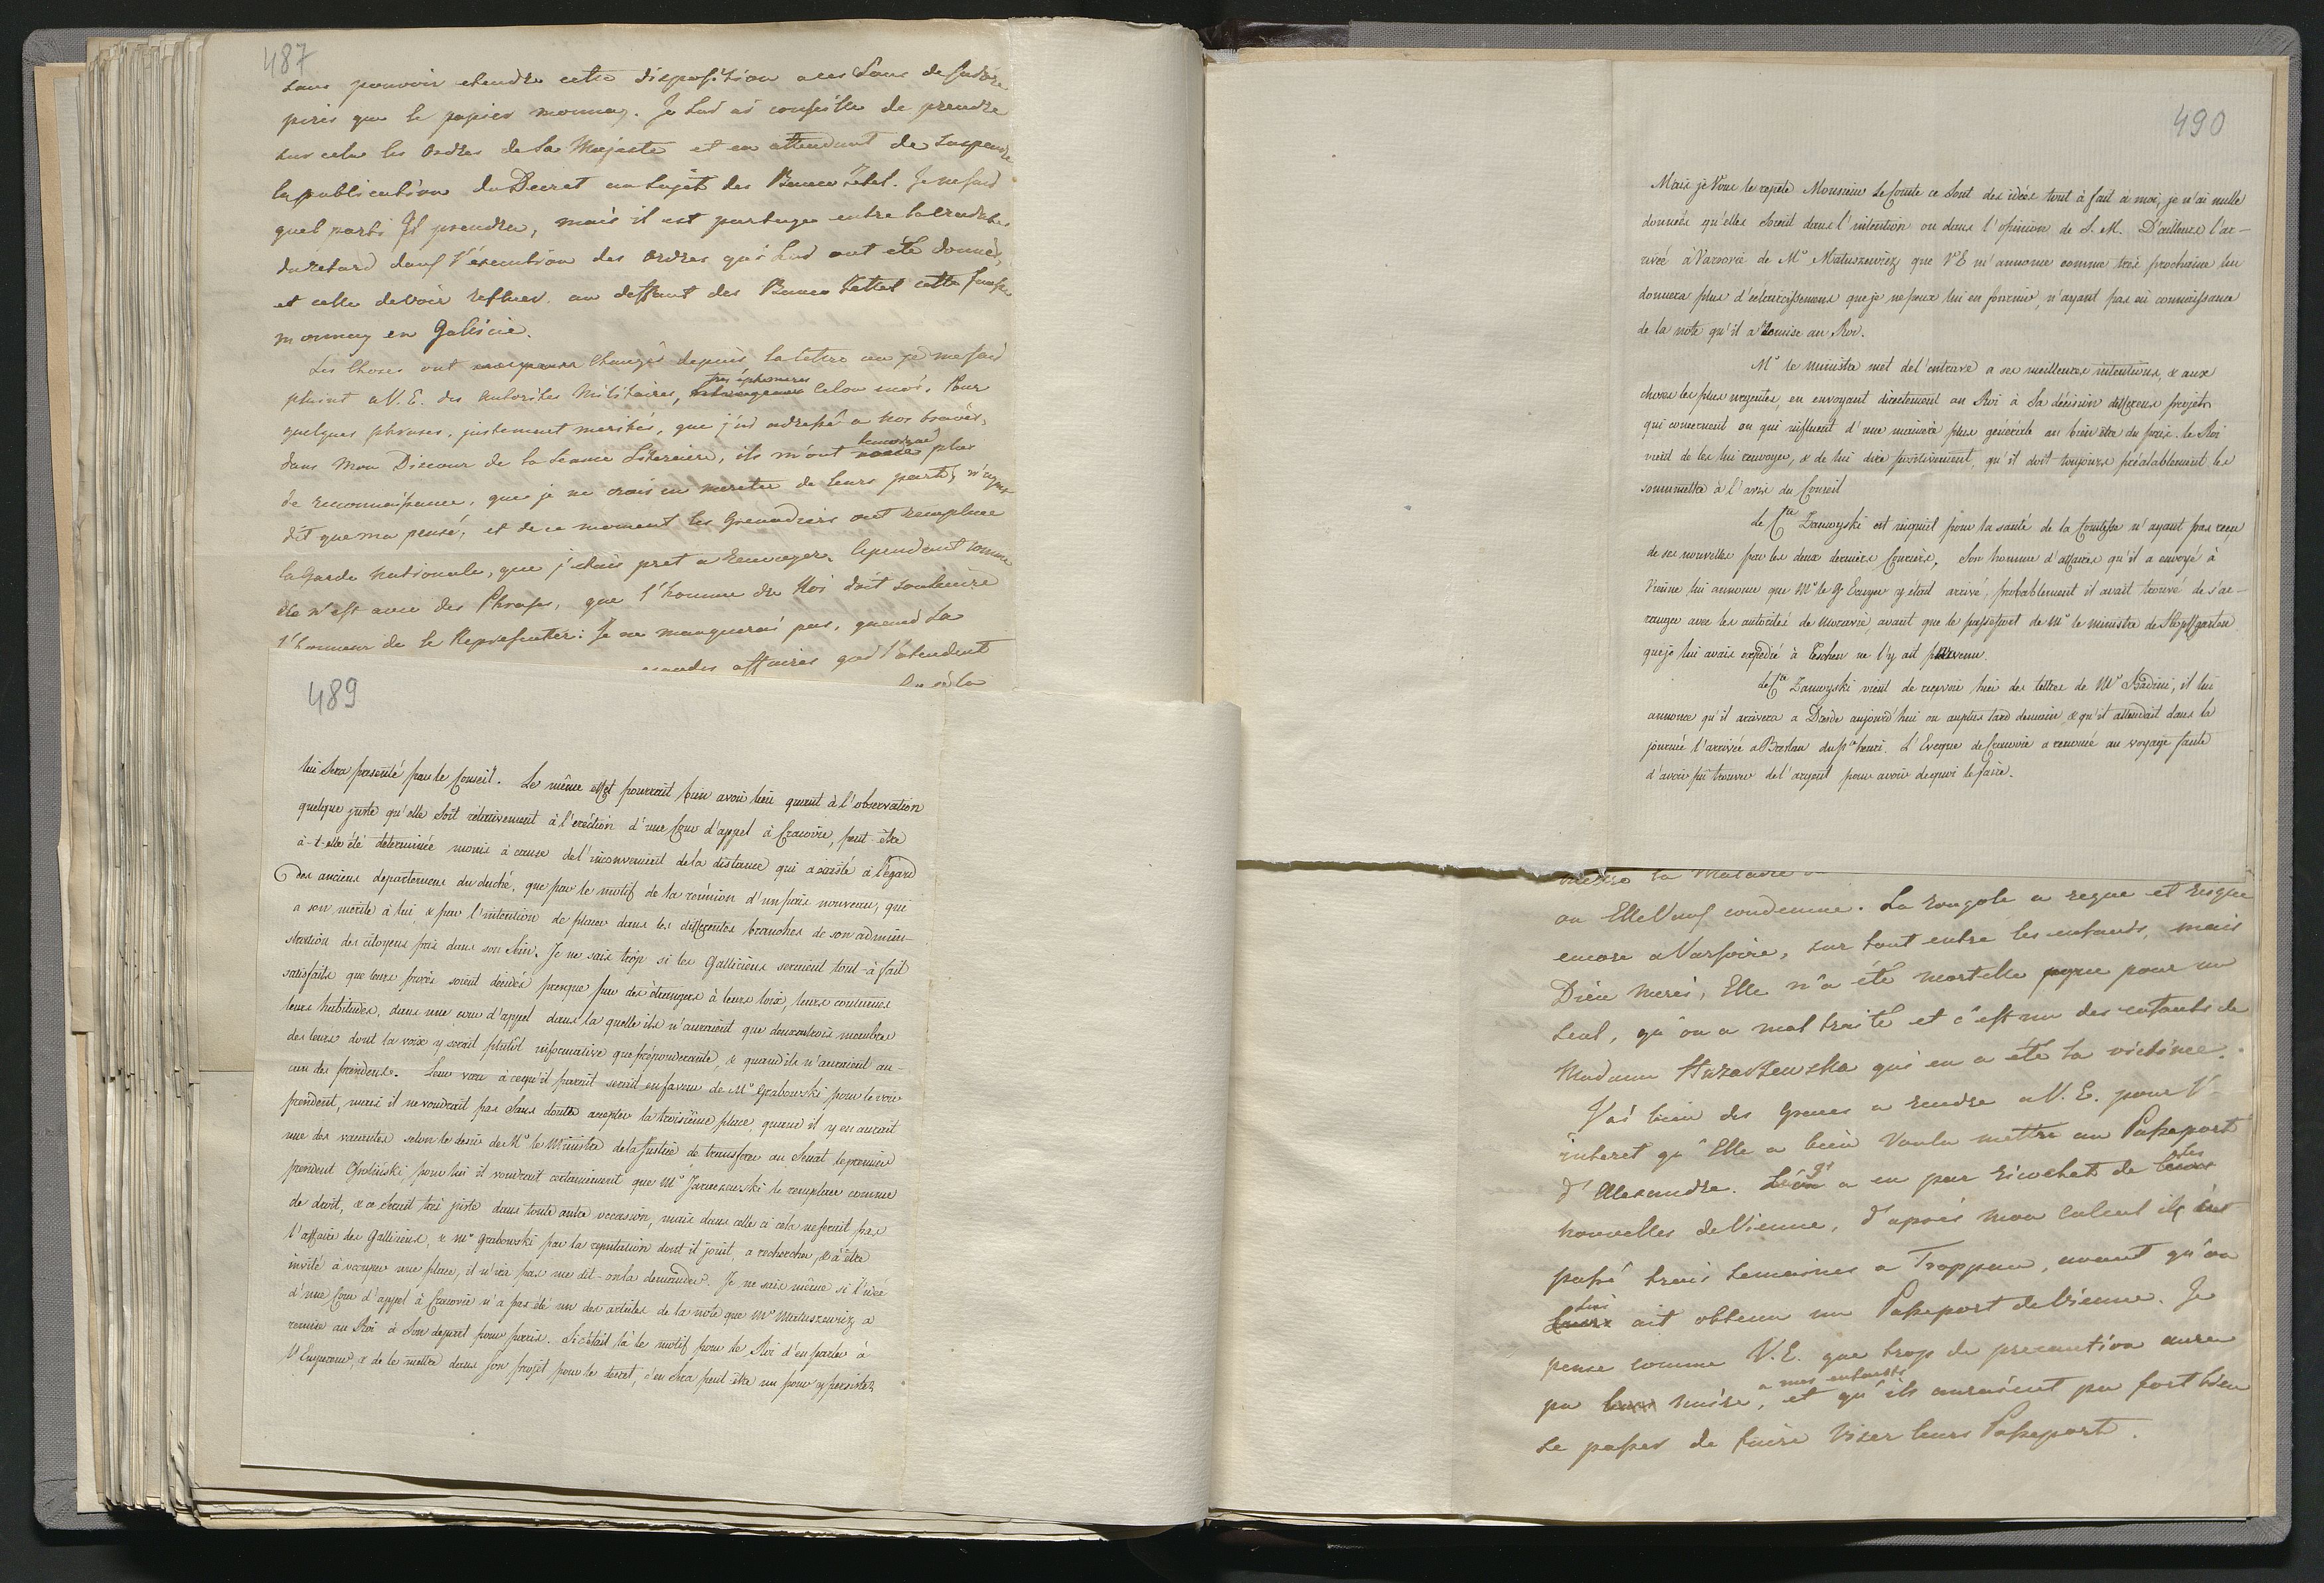 487
sans pouvoir etendre cette disposition a ces Sous de
pires que le papier monnay. Je Lui ai conseille de prendre
sur cela les Ordres de Sa Majeste et en attendant de suspendre
la publication du Decret au Sujet des Banco Zetel. Je ne sais
quel parti Il prendra, mais il est partagé entre la crainte
du retard dans l'execution des Ordres qui Lui ont été donnés,
et celle de voir refluer au deffaut des Banco Zettel cette fausse
monnay en Galicie.
Les Choses ont changés depuis la lettre ou je me suis
plaint a V. E. des Autorites Militaires,
très éphemeres
Celon moi. Pour
quelques phrases, justement merités, que j'ai adressé a nos braves,
dans mon Discour de la Seance Literaire, ils m'ont
temoigné
plus
de reconnaissance, que je ne crois en meriter de leurs part, n'ayant
dit que ma pensé, et de ce moment les Grenadiers ont remplacé
la Garde Nationale, que j'etais pret a renvoyer. Cependant comme
ce n'est avec des Phrases, que l'homme du Roi doit soutenire
l'honneur de le Representer: Je ne manquerai pas, quand la
affaires qui l'etendent
489
lui sera presenté par le Conseil. Le même effet pourrait bien avoir lieu quant à l'observation
quelque juste qu'elle soit relativement à l'erection d'une Cour d'appel à Cracovie, peut-être
a-t-elle été determinée moins à cause de l'inconvenient de la distance qui a existé à l'égard
des anciens departemens du duché, que par le motif de la reunion d'un païs nouveau, qui
a son merite à lui & par l'intention de placer dans les differentes branches de son admini-
stration des citoyens pris dans son Sein. Je ne sais trop si les Galliciens seraient tout-à-fait
satisfaits que leurs procès soient décidés presque par des étrangers à leurs loix, leurs coutumes
leurs habitudes, dans une cour d'appel dans la quelle ils n'auraient que deux ou trois membres
des leurs dont la voix y serait plutôt informative que préponderante, & quand ils n'auraient au-
cun des presidens. Leur vœu à ce qu'il parait serait en faveur de Mr Grabowski pour le voir
president, mais il ne voudrait pas sans doute accepter la troisième place, quand il y en aurait
une des vacantes selon le desir de Mr le Ministre de la Justice de transferer au Senat le premier
president pour lui il voudrait certainement que Mr le remplace comme
de droit, & ce serait très juste dans toute autre occasion, mais dans celle ci cela ne ferait pas
l'affaire des Galliciens, & Mr Grabowski par la reputation dont il jouit, a rechercher, & a être
invité à occuper une place, il n'ira pas me dit-on la demander. Je ne sais même si l'idée
d'une Cour d'appel à Cracovie n'a pas été un des articles de la note que Mr Matuszewiz a
remise au Roi à Son depart pour Paris. Si c'était là le motif pour le Roi d'en parler à
l'Empereur & de le mettre dans Son projet pour le decret, c'en sera peut être un pour y persister.
490
Mais je Vous le repete Monsieur le Comte ce sont des idées tout à fait à moi, je n'ai nulle
donnés qu'elles soient dans l'intention ou dans l'opinion de S. M. D'ailleurs l'ar-
rivée à Varsovie de Mr Matuszewicz que V.E m'annonce comme très prochaine lui
donnera plus d'eclaircissemens que je ne peux lui en fournir, n'ayant pas eü connaissance
de la note qu'il a remise au Roi.
Mr le ministre met de l'entrave a ses meilleures intentions, & aux
choses les plus urgentes, en envoyant directement au Roi à Sa décision differens projets
qui concernent ou qui influent d'une maniere plus générale au bien être du païs. le Roi
vient de les lui renvoyer, & de lui dire positivement, qu'il doit toujours préalablement les
soummettre à l'avis du Conseil
le Cte Zamoyski est inquiet pour la santé de la Comtesse n'ayant pas reçu
de ses nouvelles par les deux derniers Couriers, Son homme d'affaires qu'il a envoyé à
Vienne lui annonce que Mr le Pce y était arrivé, probablement il avait trouvé de s'ar-
ranger avec les autorités de Moravie, avant que le passeport de Mr le ministre de
que je lui avais expedié à Teschen ne l'y ait parvenu.
le Cte Zamoyski vient de reçevoir hier des lettres de Mr Badini, il lui
annonce qu'il arrivera a Dresde aujourd'hui ou au plus tard demain, & qu'il attendait dans la
journée l'arrivée a Breslau du Pce henri. L'Eveque de Cracovie a renoncé au voyage faute
d'avoir pû trouver de l'argent pour avoir de quoi le faire.
mettre la Malade
ou Elle l'eus condemne. La rougole a regné et regne
encore a Varsovie, sur tout entre les enfants, mais
Dieu merci, Elle n'a été mortelle que pour un
seul, qu'on a mal traité et c'est un des enfants de
Madame qui en a été la victime.
J'ai bien des Graces a rendre a V. E. pour l'
interet qu'Elle a bien Voulu mettre au Passeport
d'Alexandre. a eu par ricochet de
nouvelles de Vienne, d'apres mon calcul ils
passé trois semaines a Troppau, avant qu'on
lui
ait obtenu un Passeport de Vienne. Je
pense comme V. E. que trop de precaution aura
pu nuire
a mes enfants
, et qu'ils auraient pu fort bien
se passer de faire Viser leurs Passeport.